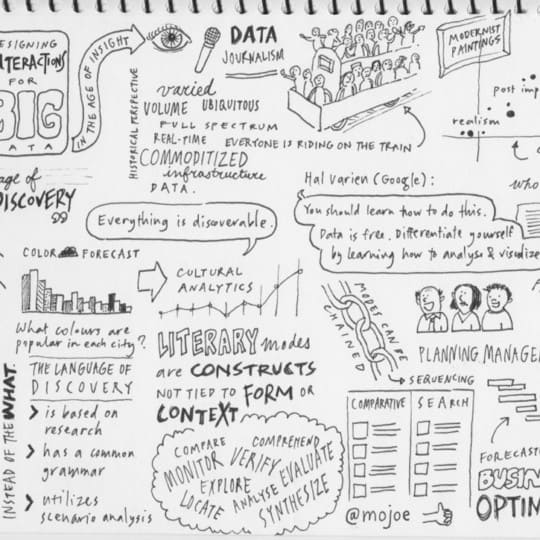 DESIGNING
INTERACTIONS
FOR
BIG
DATA
IN THE AGE OF INSIGHT
DATA
JOURNALISM
HISTORICAL PERSPECTIVE
varied
VOLUME UBIQUITOUS
FULL SPECTRUM
REAL-TIME
COMMODITIZED
infrastructure
DATA.
EVERYONE IS RIDING ON THE TRAIN
MODERNIST
PAINTINGS
post imp
realism
age of
DISCOVERY
Everything is discoverable.
Hal Varien (Google):
You should learn how to do this.
Data is free. Differentiate yourself
by learning how to analyse & visualize
who
COLOR FORECAST
What colours are
popular in each city?
CULTURAL
ANALYTICS
MODES CAN BE
CHAINED
PLANNING MANAGE
SEQUENCING
COMPARATIVE
SEARCH
LITERARY modes
are CONSTRUCTS
NOT TIED TO FORM OR
CONTEXT
INSTEAD OF THE WHAT.
THE LANGUAGE OF
DISCOVERY
> is based on
research
> has a common
grammar
> utilizes
scenario analysis
COMPARE COMPREHEND
MONITOR VERIFY EVALUATE
EXPLORE ANALYSE
LOCATE SYNTHESIZE
@mojoe
FORECAST
BUSIN
OPTIM